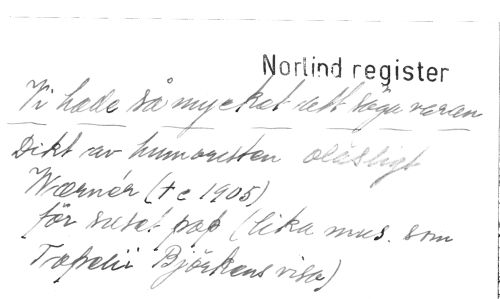 Norlind register
Vi hade så mycket att säga varan
Dikt av humoristen oläsligt
Wærnér (t c 1905)
för sulet pop (lika mus. som
Topelii Björkens visa)